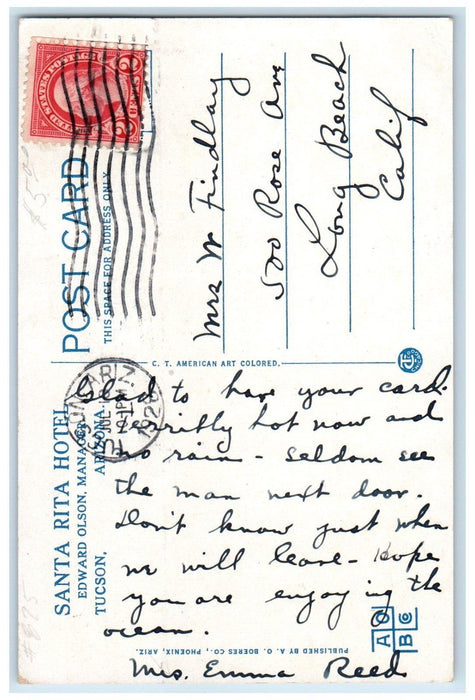 UNITED STATES POSTAGE
2 CENTS 2
POST CARD
THIS SPACE FOR ADDRESS ONLY
Mrs W Findlay
500 Rose Ave
Long Beach
Calif
C. T. AMERICAN ART COLORED.
TUCSON ARIZ.
1926
SANTA RITA HOTEL
EDWARD OLSON, MANAGER
TUCSON, ARIZONA
Glad to have your card.
Terribly hot now and
no rain - seldom see
the man next door.
Don't know just when
we will leave - Hope
you are enjoying the
ocean.
Mrs. Emma Reed
PUBLISHED BY A. O. BOERES CO., PHOENIX, ARIZ.
AOBCo